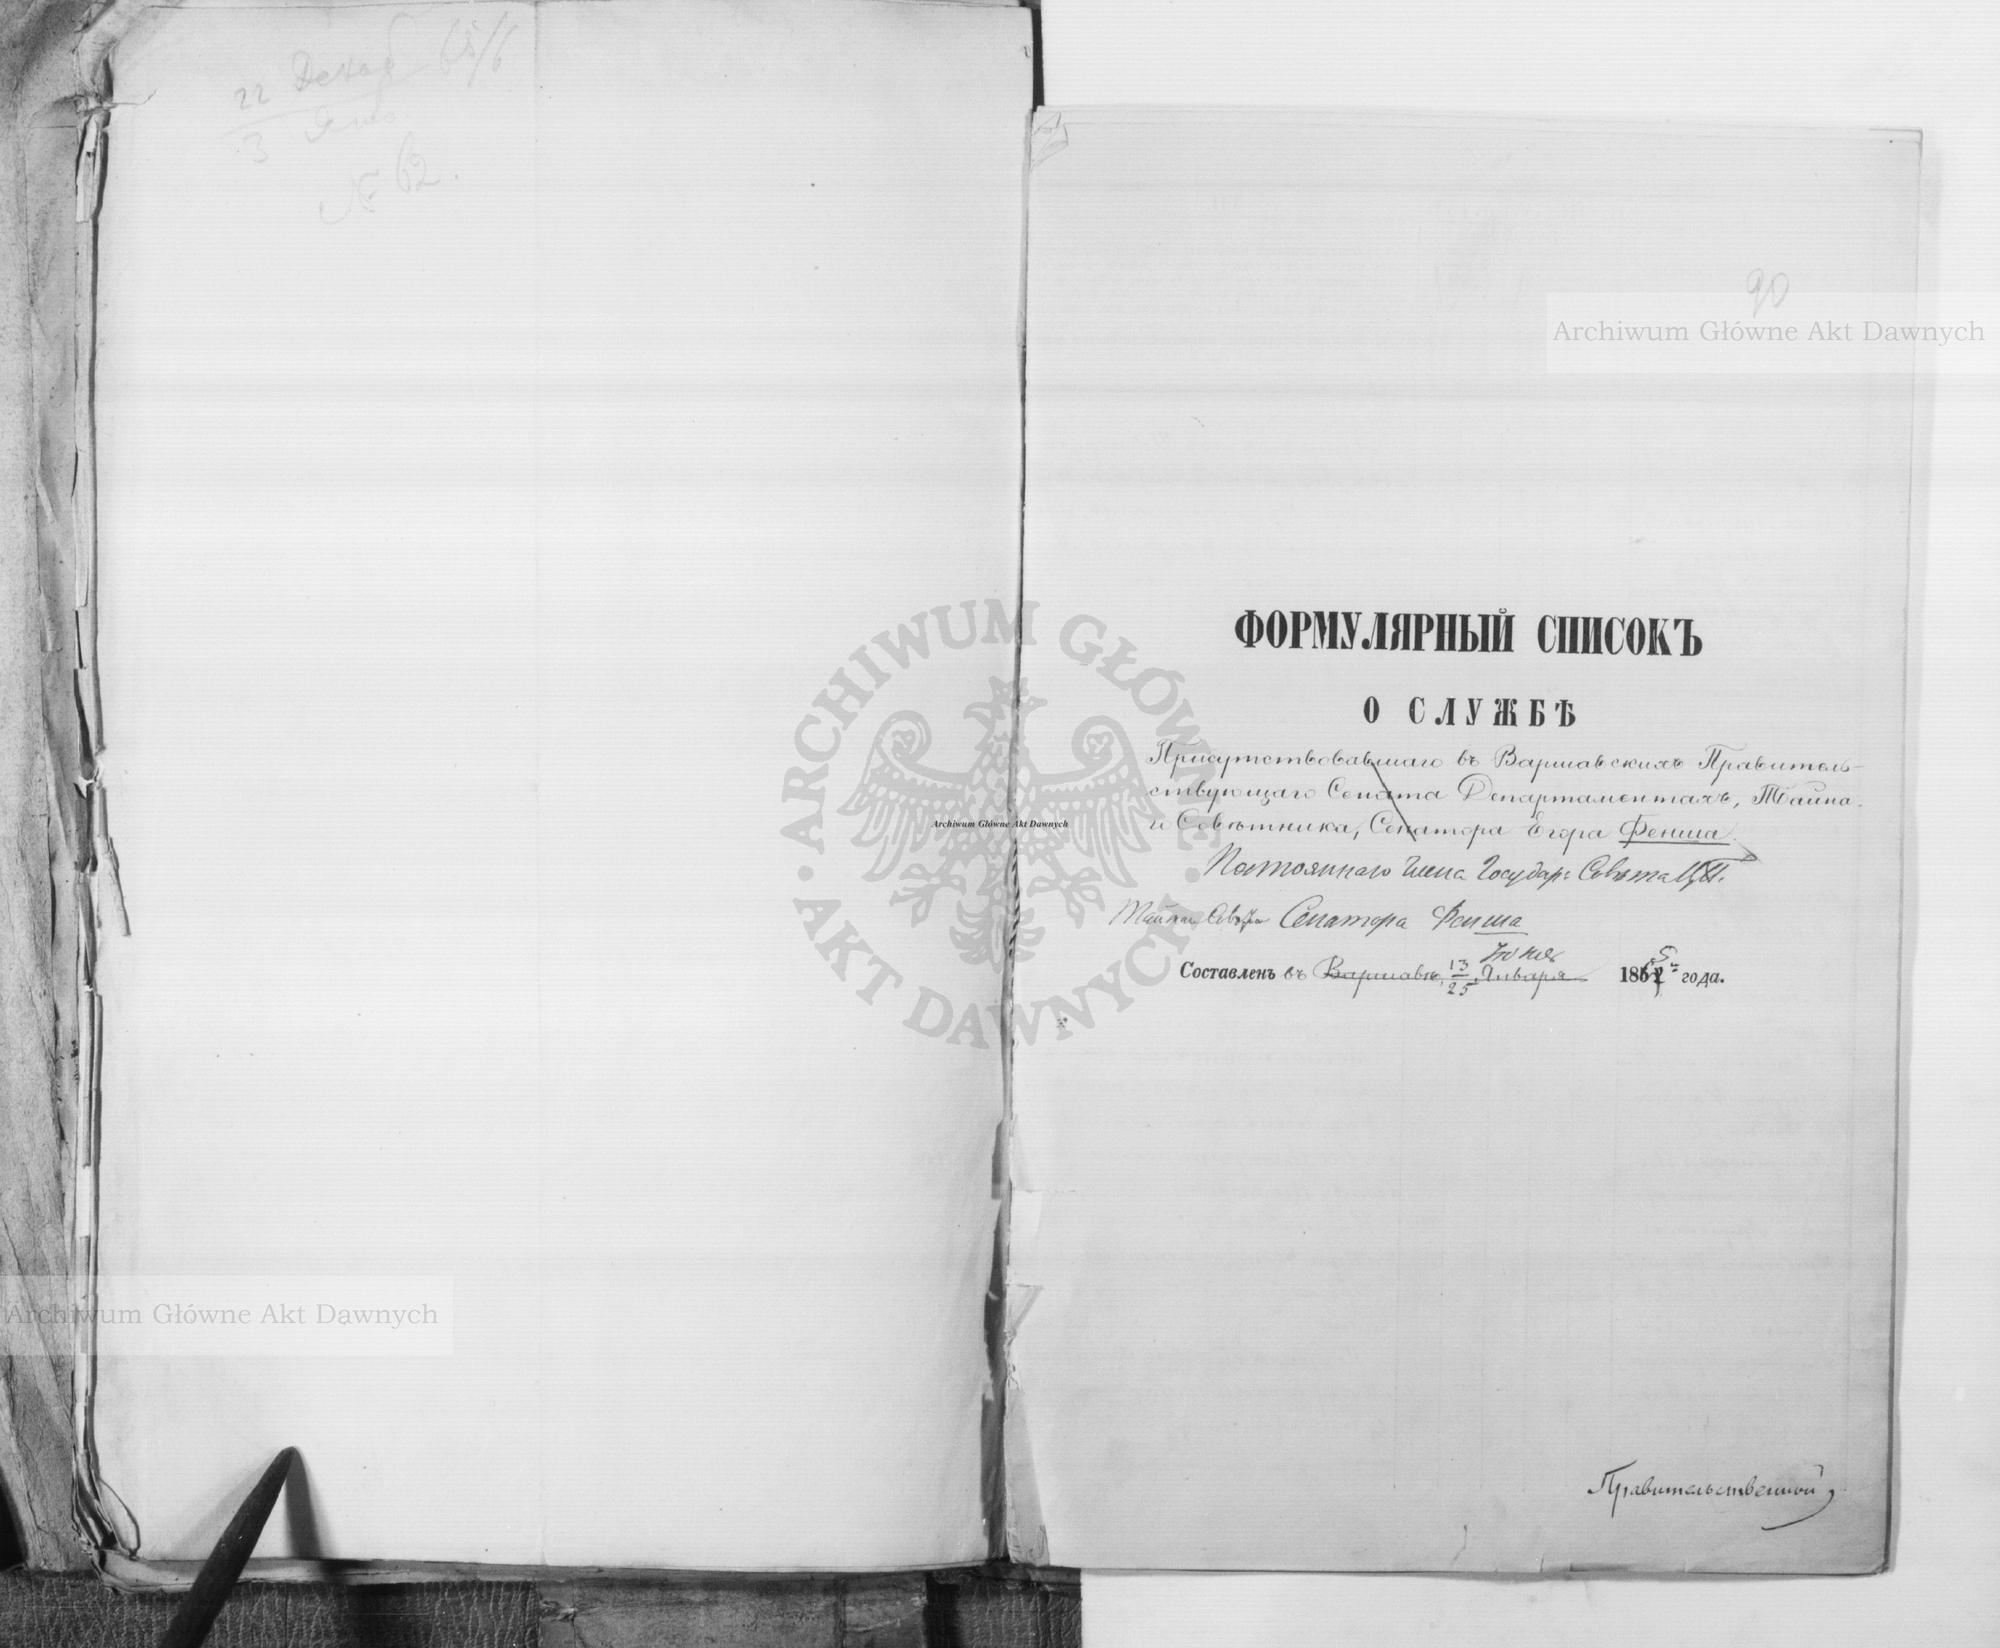 22 Декаб 65/6
3 Янв.
№ 62.
90
Archiwum Główne Akt Dawnych
ФОРМУЛЯРНЫЙ СПИСОКЪ
О СЛУЖБѢ
Присутствовавшаго въ Варшавскихъ Правитель-
ствующаго Сената Департаментахъ, Тайна-
го Совѣтника, Сенатора Егора Фенша
Постояннаго Члена Государ: Совѣта Ц.П.
Тайнаго Сенатора Фенша
Июня
Составленъ въ Варшавѣ, 13/25 Января 186 года.
Правительственной
ARCHIWUM GŁÓWNE AKT DAWNYCH
Archiwum Główne Akt Dawnych
Archiwum Główne Akt Dawnych